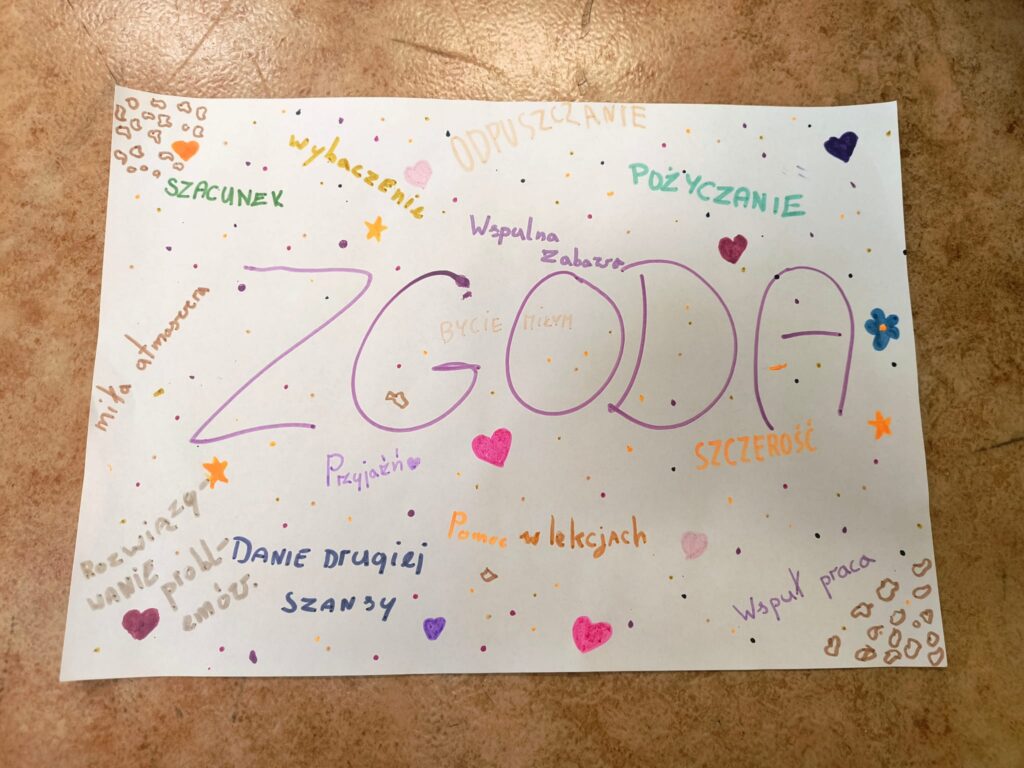 ODPUSZCZANIE
wybaczenie
SZACUNEK
POŻYCZANIE
Wspulna
Zabawa
ZGODA
BYCIE MIŁYM
miła atmosfera
Przyjaźń
SZCZEROŚĆ
Rozwiązy-
wanie
probl-
emów.
DANIE Drugiej
SZANSY
Pomoc w lekcjach
Wspuł praca